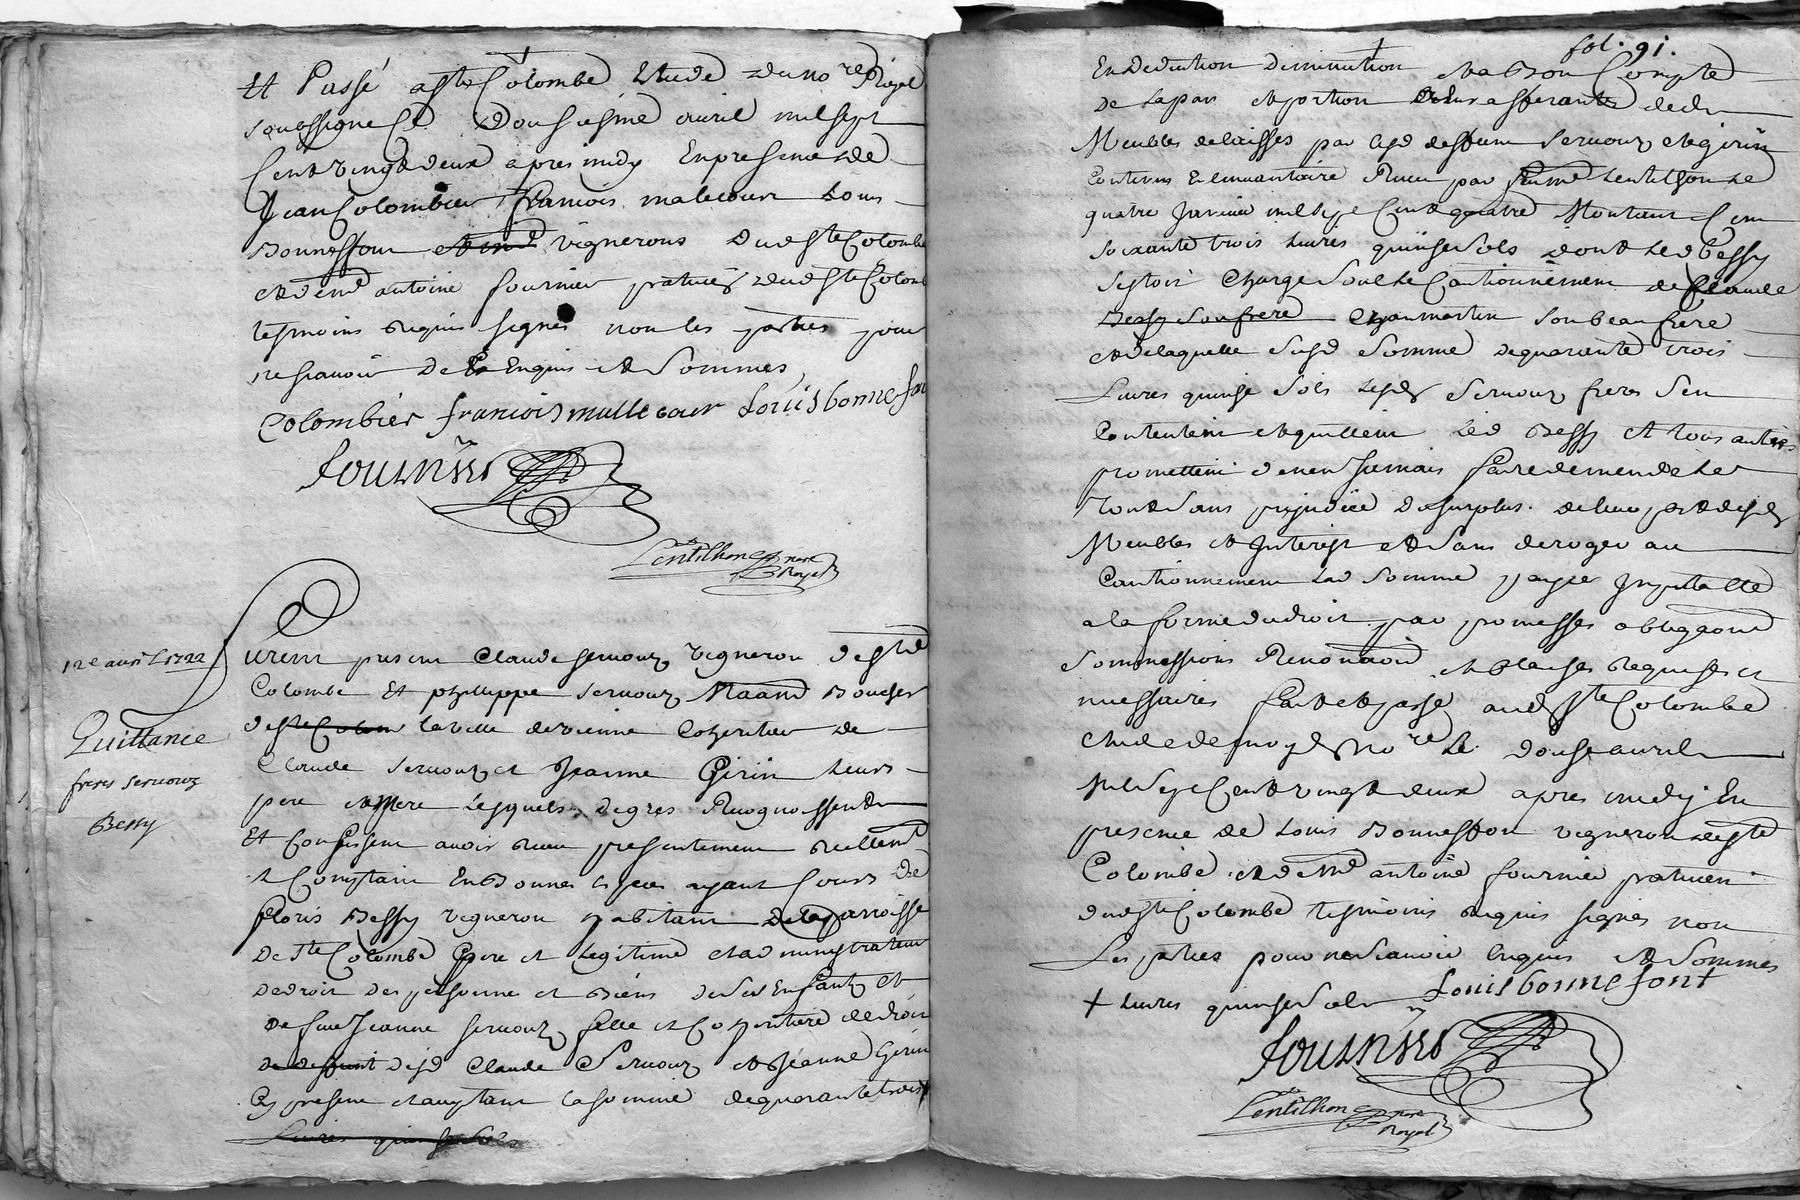 Et Passé a ste Colombe Etude du no re Royal
soussigné le Dousiesme auril mil sept
Cent vingt deux apres midy En presence de
Jean Colombier francois malecour Louis
Bonnessfon vignerons dud ste Colombe
et de me antoine fournier praticien dud ste Colombe
tesmoins requis signes non les parties pour
ne scauoir De Ce Enquis et Sommes
Colombier francois mallecour Louis bonnefon
fournier
Lentilhon no re Royal
12e auril 1722
Quittance
freres seruouz
Bessy
Furent presens Claude seruouz vigneron de ste
Colombe Et phylippe seruouz Maand Boucher
de ste Colom la ville de vienne Coheritiers de
Claude seruouz et Jeanne Girin Leurs
pere et Mere Lesquels de gres Recognoissent
Et Confessent auoir receu presentement reellem t
et Comptant En Bonnes especes ayant Cours De
floris Bessy vigneron habitant De la parroisse
De ste Colombe Pere et Legitime et administrateur
de droit des personne et Biens de ses Enfants et
de feue Jeanne seruouz fille et Coheritiere de droit
de deffunt desd Claude Seruouz et Jeanne Girin
Cy present et acceptant la somme de quarante trois +
Livres quinse sols
fol. 91.
En Deduction Diminution et a Bon Compte
De la part et portion a Eux afferante de
Meubles delaisses par lesd deffunt seruouz et girin
Contenus En linuantaire Receu par feu me Lentilhon Le
quatre Januier mil sept Cent quatre Montant Cent
soixante trois Liures quinse sols dont led Bessy
sestoit Charge soubs le Cautionnement de Claude
Bessy son frere et Jean martin son beau frere
et de laquelle susd somme de quarante trois
Liures quinse sols lesd seruouz freres sen
Contentent et quittent Led Bessy et tous autres
promettent den en Jamais faire demende Le
tout sans prejudice du surplus de leur part desd
Meubles et Interest et sans deroger au
Cautionnement Lad somme payee Imputable
a la forme du droit par promesses obligaons
Soummissions Renonciaon et Clauses Requises et
necessaires fait et passé aud ste Colombe
Etude de moyd no re Le douse auril
Mil sept Cent vingt deux apres midy En
presence de Louis Bonnesfon vigneron de ste
Colombe et de me antoine fournier praticien
dud ste Colombe tesmoins requis signes non
Les parties pour ne scauoir Enquis et Sommes
+ Liures quinse sols Louis bonnefont
fournier
Lentilhon no re Royal